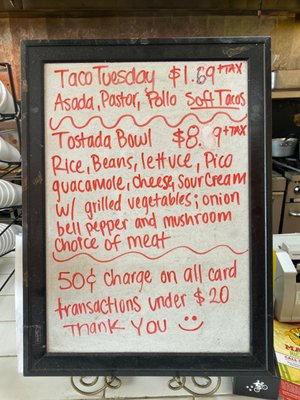 Taco Tuesday $1.69 +TAX
Asada, Pastor, Pollo Soft Tacos
Tostada Bowl +TAX
Rice, Beans, lettuce, Pico
guacamole, cheese, Sour Cream
w/ grilled vegetables; onion
bell pepper and mushroom
choice of meat
50¢ charge on all card
transactions under $20
Thank You